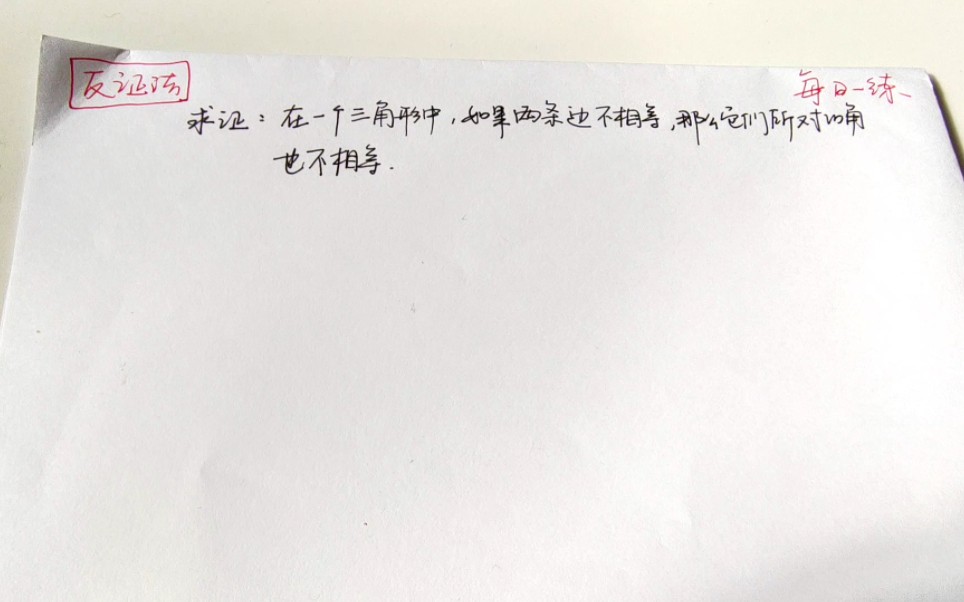 反证法
每日一练
求证：在一个三角形中，如果两条边不相等，那么它们所对的角
也不相等.